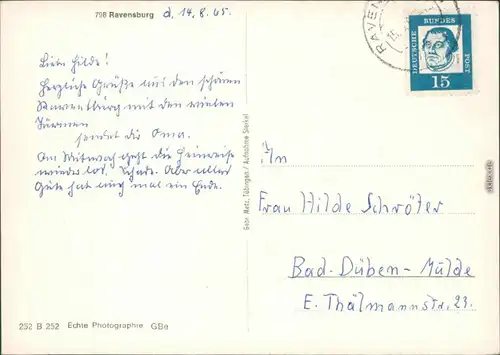 798 Ravensburg d, 14.8.65.
Liebe Hilde!
Herzliche Grüße aus den schönen
Ravensburg mit den vielen
Türmen
sendet dir Oma.
Am Mittwoch geht die Heimreise
wieder los. Schade. Aber alles
Gute hat auch mal ein Ende.
252 B 252 Echte Photographie GBe
Gebr. Metz, Tübingen / Aufnahme Steikel
RAVEN
DEUTSCHE BUNDES POST
15
An
Frau Hilde Schröter
Bad-Düben-Mulde
E. Thälmannstr. 23.